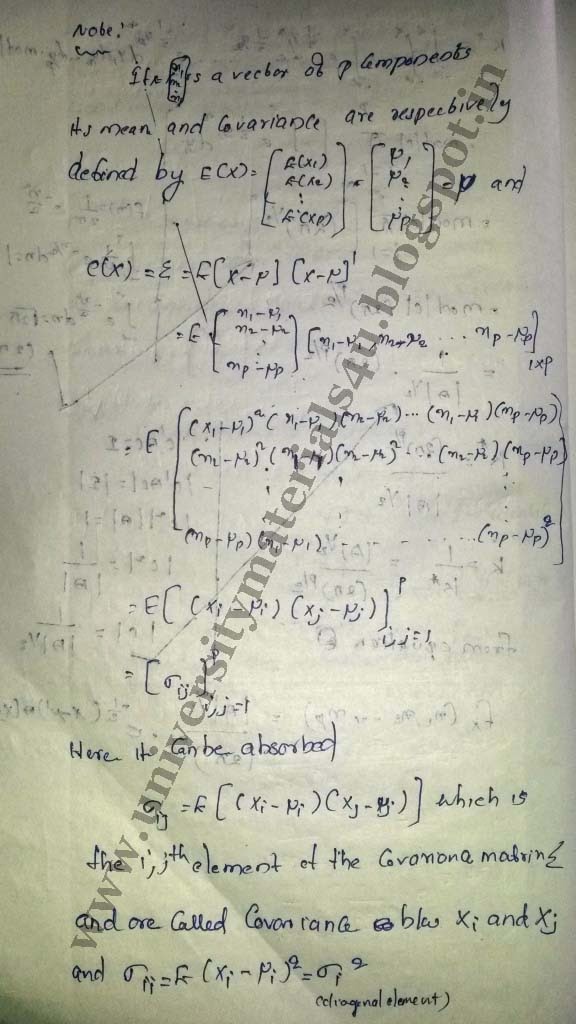 Note:-
If x = [x1 x2 : xp] is a vector of p Components
its mean and Covariance are respectively
defined by E(X) = [E(x1) E(x2) : E(xp)] = [μ1 μ2 : μp] = μ and
C(X) = Σ = E[X-μ] [X-μ]'
= E [x1-μ1 x2-μ2 : xp-μp] [x1-μ1, x2-μ2 ... xp-μp] 1xp
= E [(x1-μ1)² (x1-μ1)(x2-μ2) ... (x1-μ1)(xp-μp)
(x2-μ2)² (x1-μ1)(x2-μ2)² ... (x2-μ2)(xp-μp)
: : :
(xp-μp)(x1-μ1) - - ... (xp-μp)²]
= E[(xi-μi)(xj-μj)] p i,j=1
= [σij] p i,j=1
Here it can be absorbed
σij = E[(xi-μi)(xj-μj)] which is
the i,jth element of the Covariance matrix Σ
and are called Covariance b/w Xi and Xj
and σii = E(xi-μi)² = σi²
(diagonal element)
www.universitymaterials4u.blogspot.in